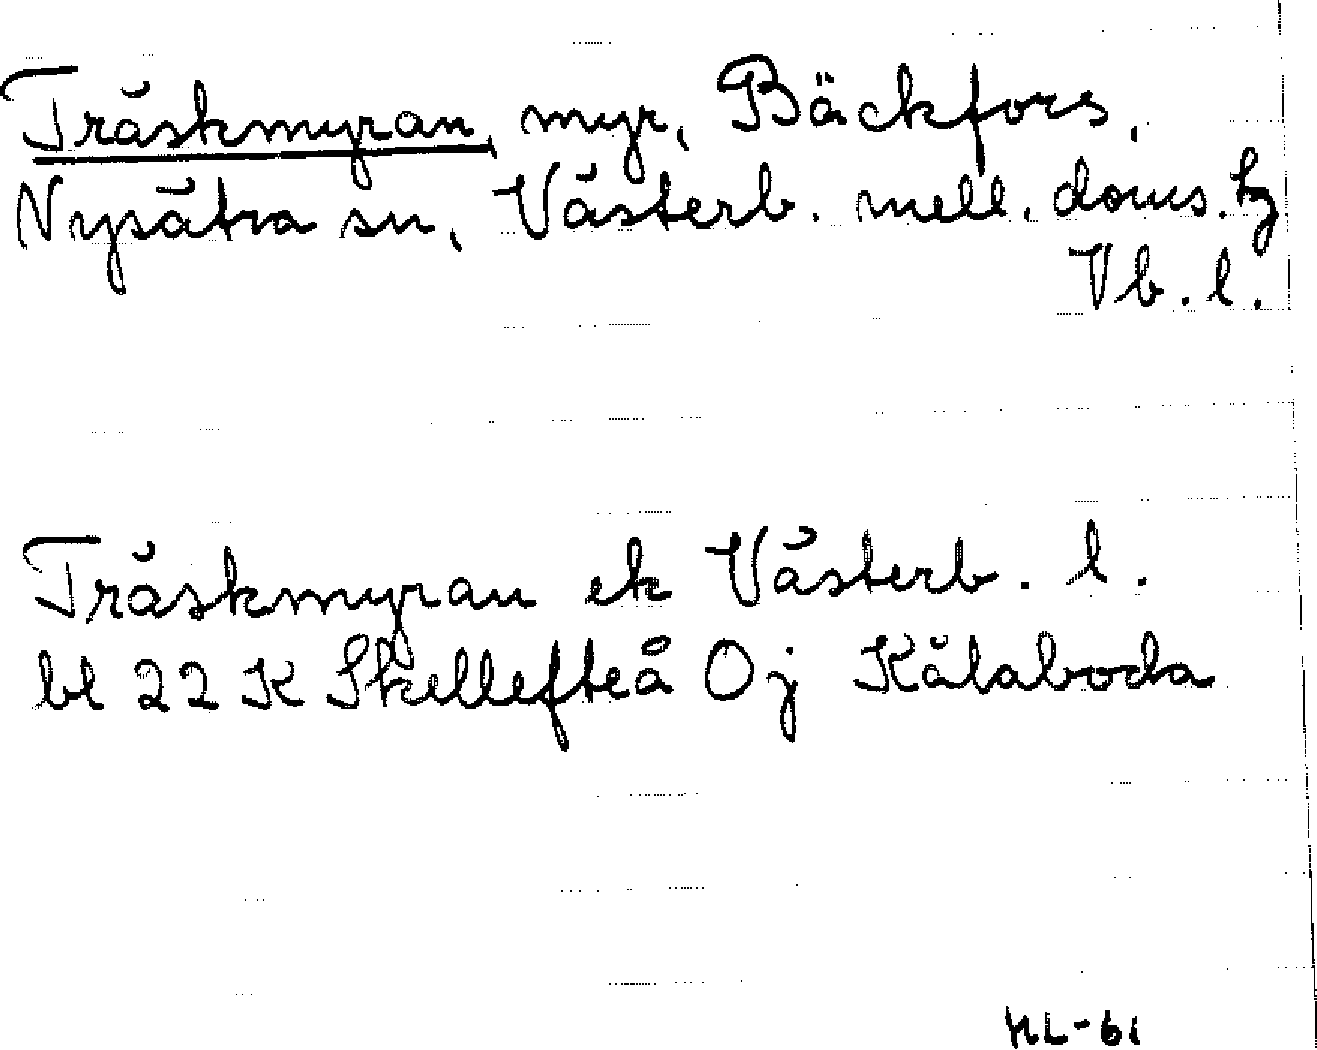 Träskmyran, myr, Bäckfors,
Nysätra sn, Västerb. mell. doms. tg
Vb. l.
Träskmyran ek Västerb. l.
bl 22 K Skellefteå Oj Kålaboda
HL-61